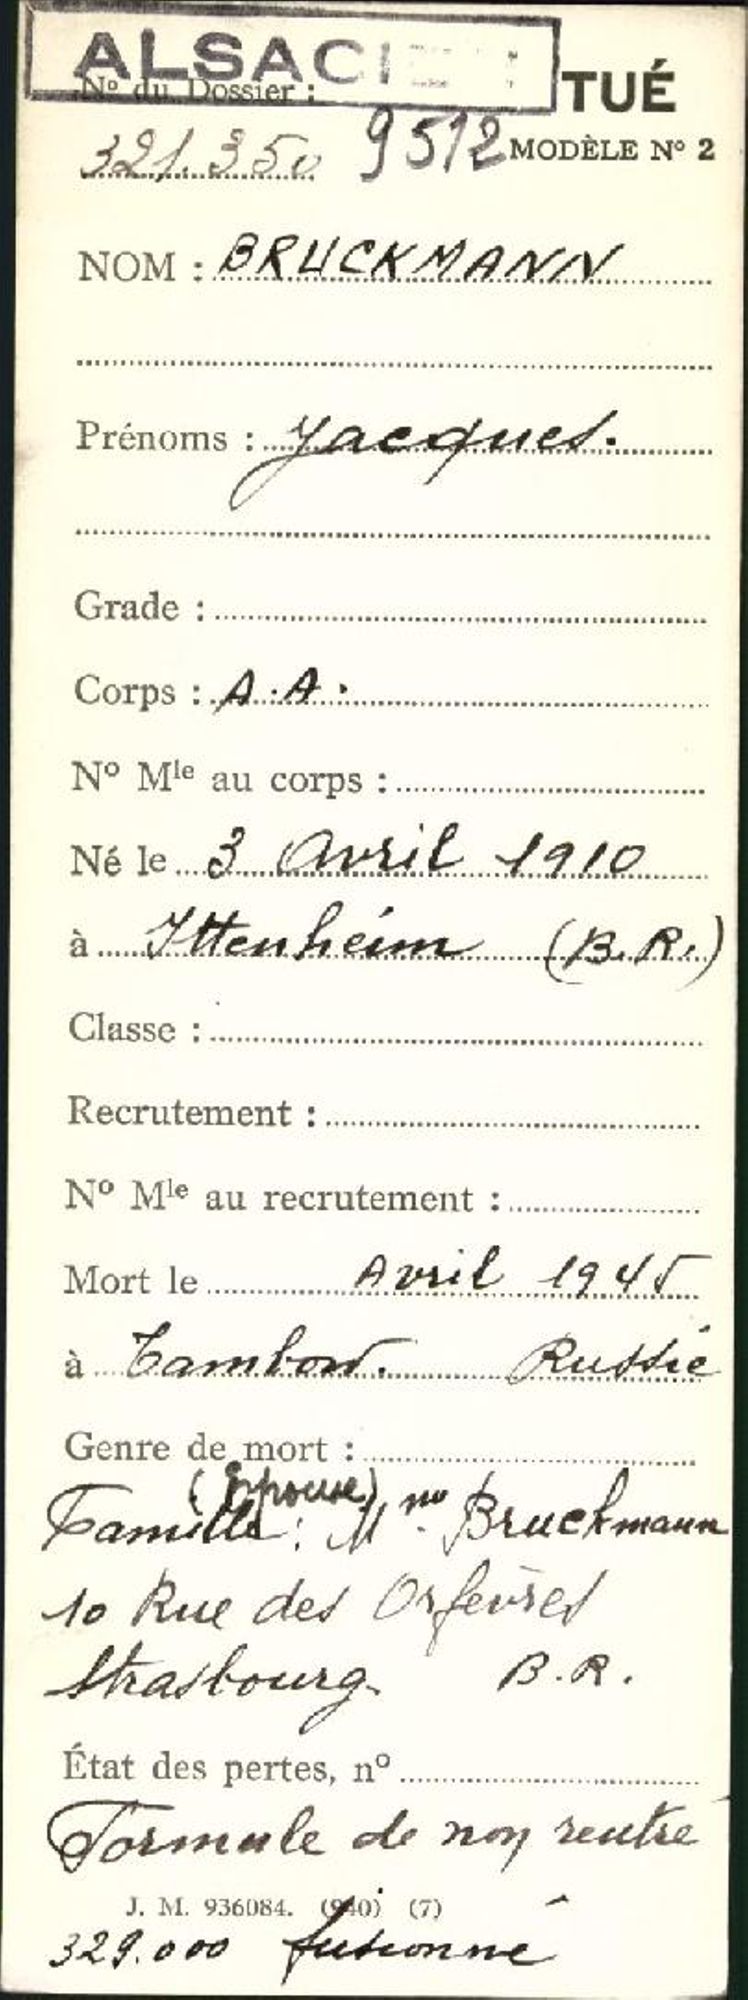 ALSACI
N° du Dossier :
TUÉ
321.350 9512 MODÈLE N° 2
NOM : BRUCKMANN
Prénoms : Jacques.
Grade :
Corps : A.A.
N° Mle au corps :
Né le 3 Avril 1910
à Ittenheim (B.R.)
Classe :
Recrutement :
N° Mle au recrutement :
Mort le Avril 1945
à Tambow. Russie
Genre de mort :
(Epouse)
Famille : Mme Bruckmann
10 Rue des Orfèvres
Strasbourg. B.R.
État des pertes, n°
Formule de non rentré
J. M. 936084. (940) (7)
329.000 fusionné